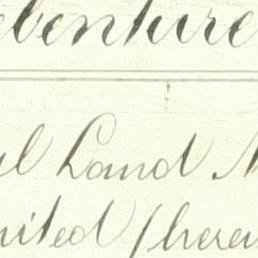 ebenture
al Land M
nited (herei